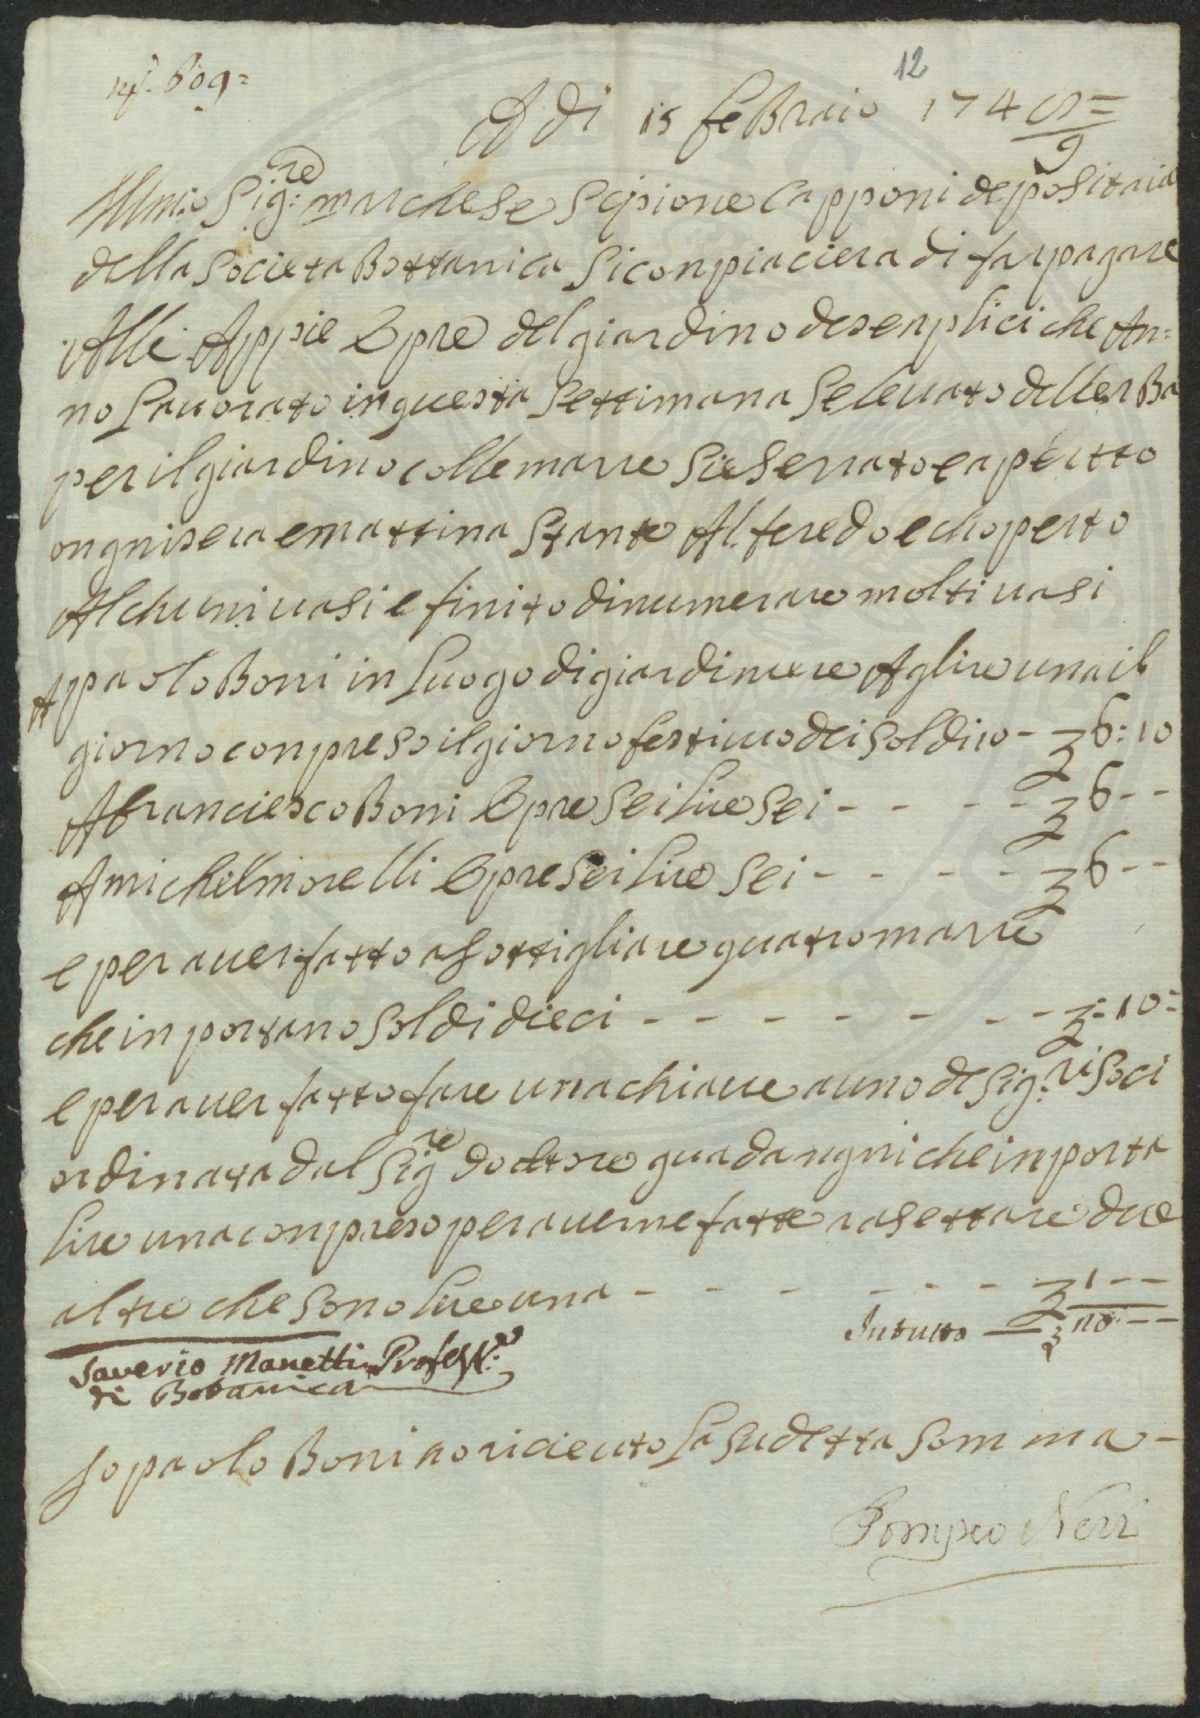 12
A di 15 febraio 1748/9
Illmo: Sig:re marchese Scipione Capponi depositario
della Societa Bottanica Si conpiaciera di far pagare
Alli Appie Opre del giardino de senplici che An=
no Lauorato in questa Settimana Se leuato dellerba
per il giardino colle marre Sie Serrato e aperto
ongni sera e mattina Stante Al feredo e choperto
Alchuni uasi e finito di numerare molti uasi
A paolo Boni in Luogo di giardiniere A glire una il
giorno conpreso il giorno festiuo di soldi 10 - ₤ 6: 10
A franciesco Boni Opre Sei lire Sei - - - - - ₤ 6 - -
A michell morelli Opre Sei Lire Sei - - - - - ₤ 6 - -
e per auer fatto a Sottigliare quatro marre
che in portano Soldi dieci - - - - - - - - ₤ -: 10 =
e per auer fatto fare una chiaue a uno de Sig:ri Soci
ordinata dal Sig:re dottore guadangni che in porta
lire una conpreso per auerne fatte rasettare due
altre che sono lire una - - - - - - - ₤ 1 - -
In tutto — ₤ 20 - -
Saverio Manetti Profess:re
di Botanica
Io paolo Boni o riceuto La sudetta Somma -
Pompeo Neri